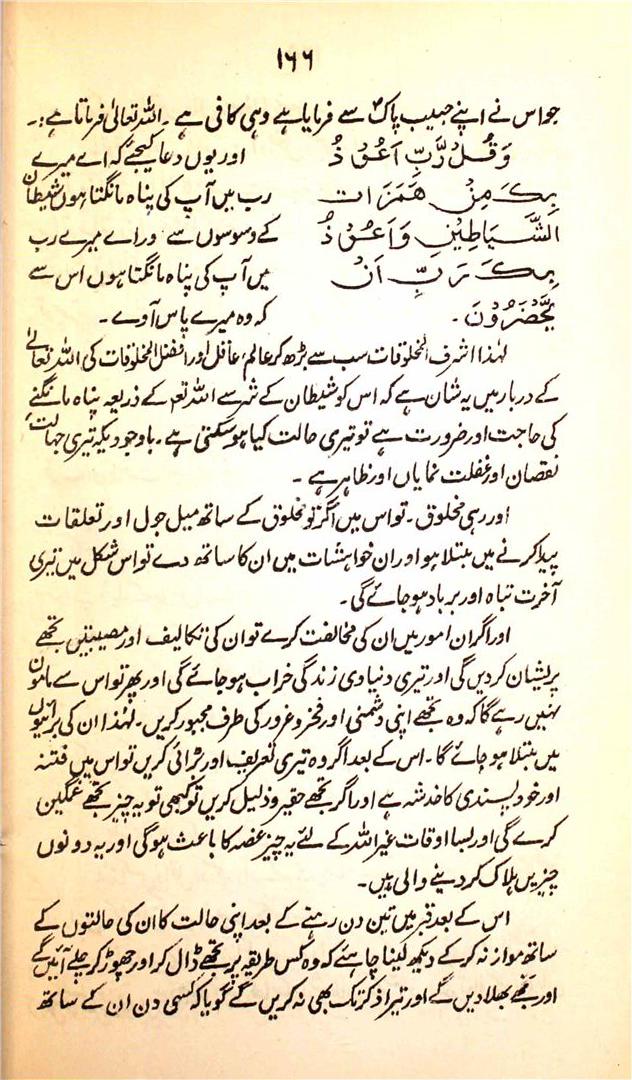 ۱۶۶
جو اس نے اپنے حبیب پاکؐ سے فرمایا ہے وہی کافی ہے۔ اللہ تعالیٰ فرماتا ہے:۔
وَقُلْ رَّبِّ اَعُوْذُ اور یوں دعا کیجئے کہ اے میرے
بِكَ مِنْ هَمَزَاتِ رب میں آپ کی پناہ مانگتا ہوں شیطان
الشَّيَاطِيْنِ وَاَعُوْذُ کے وسوسوں سے ور اے میرے رب
بِكَ رَبِّ اَنْ میں آپ کی پناہ مانگتا ہوں اس سے
يَّحْضُرُوْنَ۔ کہ وہ میرے پاس آوے۔
لہٰذا اشرف المخلوقات سب سے بڑھ کر عالم، عاقل اور افضل المخلوقات کی اللہ تعالیٰ
کے دربار میں یہ شان ہے کہ اس کو شیطان کے شر سے اللہ تعہ کے ذریعہ پناہ مانگنے
کی حاجت اور ضرورت ہے تو تیری حالت کیا ہو سکتی ہے۔ باوجودیکہ تیری جہالت،
نقصان اور غفلت نمایاں اور ظاہر ہے۔
اور رہی مخلوق۔ تو اس میں اگر تو مخلوق کے ساتھ میل جول اور تعلقات
پیدا کرنے میں مبتلا ہو اور ان خواہشات میں ان کا ساتھ دے تو اس شکل میں تیری
آخرت تباہ اور برباد ہو جائے گی۔
اور اگر ان امور میں ان کی مخالفت کرے تو ان کی تکالیف اور مصیبتیں تجھے
پریشان کر دیں گی اور تیری دنیاوی زندگی خراب ہو جائے گی اور پھر تو اس سے مامون
نہیں رہے گا کہ وہ تجھے اپنی دشمنی اور فخر و غرور کی طرف مجبور کریں۔ لہٰذا ان کی برائیوں
میں مبتلا ہو جائے گا۔ اس کے بعد اگر وہ تیری تعریف اور بڑائی کریں تو اس میں فتنہ
اور خود پسندی کا خدشہ ہے اور اگر تجھے حقیر و ذلیل کریں تو کبھی تو یہ چیز تجھے غمگین
کرے گی اور بسا اوقات غیر اللہ کے لئے یہ چیز غصہ کا باعث ہو گی اور یہ دونوں
چیزیں ہلاک کر دینے والی ہیں۔
اس کے بعد قبر میں تین دن رہنے کے بعد اپنی حالت کا ان کی حالتوں کے
ساتھ موازنہ کر کے دیکھ لینا چاہئے کہ وہ کس طریقہ پر تجھے ڈال کر اور چھوڑ کر چلے آئیں گے
اور تجھے بھلا دیں گے اور تیرا ذکر تک بھی نہ کریں گے گویا کہ کسی دن ان کے ساتھ